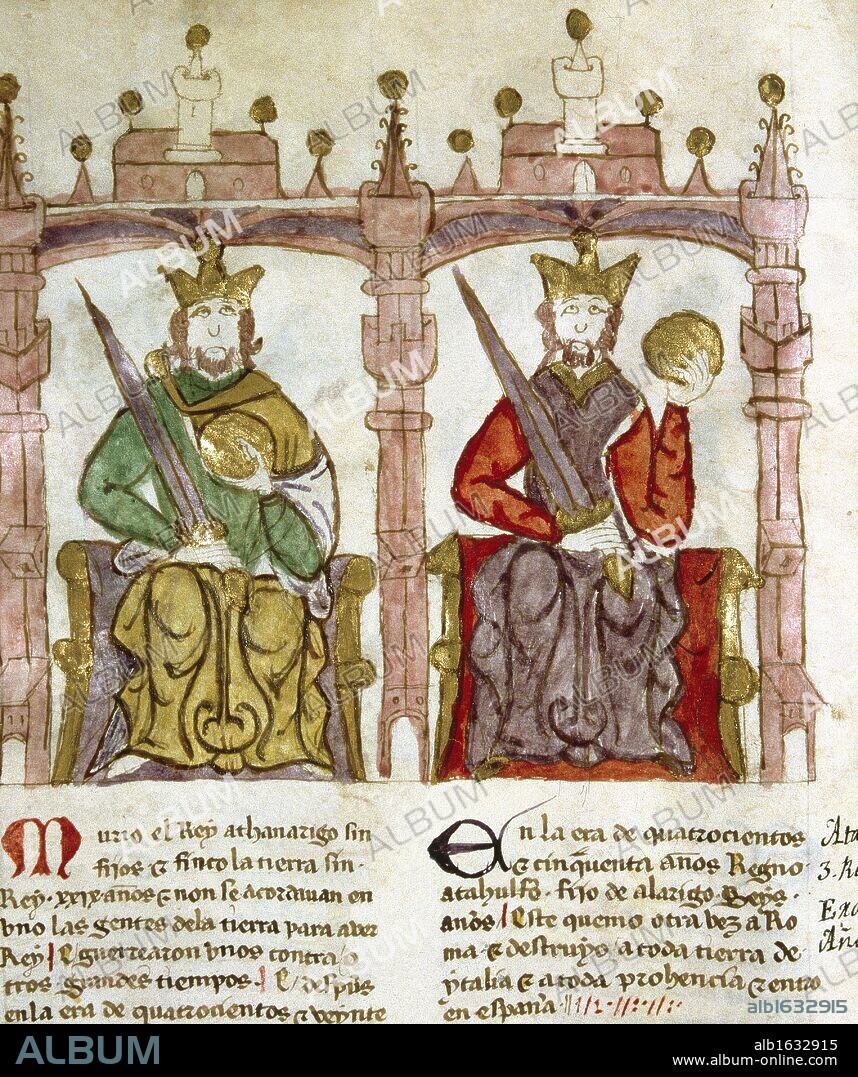 Murio el Rey athanarigo sin
fijos & finco la tierra sin
Rey · xxix años & non se acordauan en
vno las gentes dela tierra para aver
Rey / E guerrearon vnos contra o
tros grandes tiempos · E despũs
en la era de quatrocientos & veynte
En la era de quatrocientos
& cinq̃uenta años Regno
atahulfo · fijo de alarigo Seys ·
años / Este quemo otra vez a Ro
ma & destruyo a toda tierra de
ytalia & a toda prohencia & entro
en españa
Ata
3. R
Año
ALBUM
alb1632915
ALBUM
alb1632915
www.album-online.com